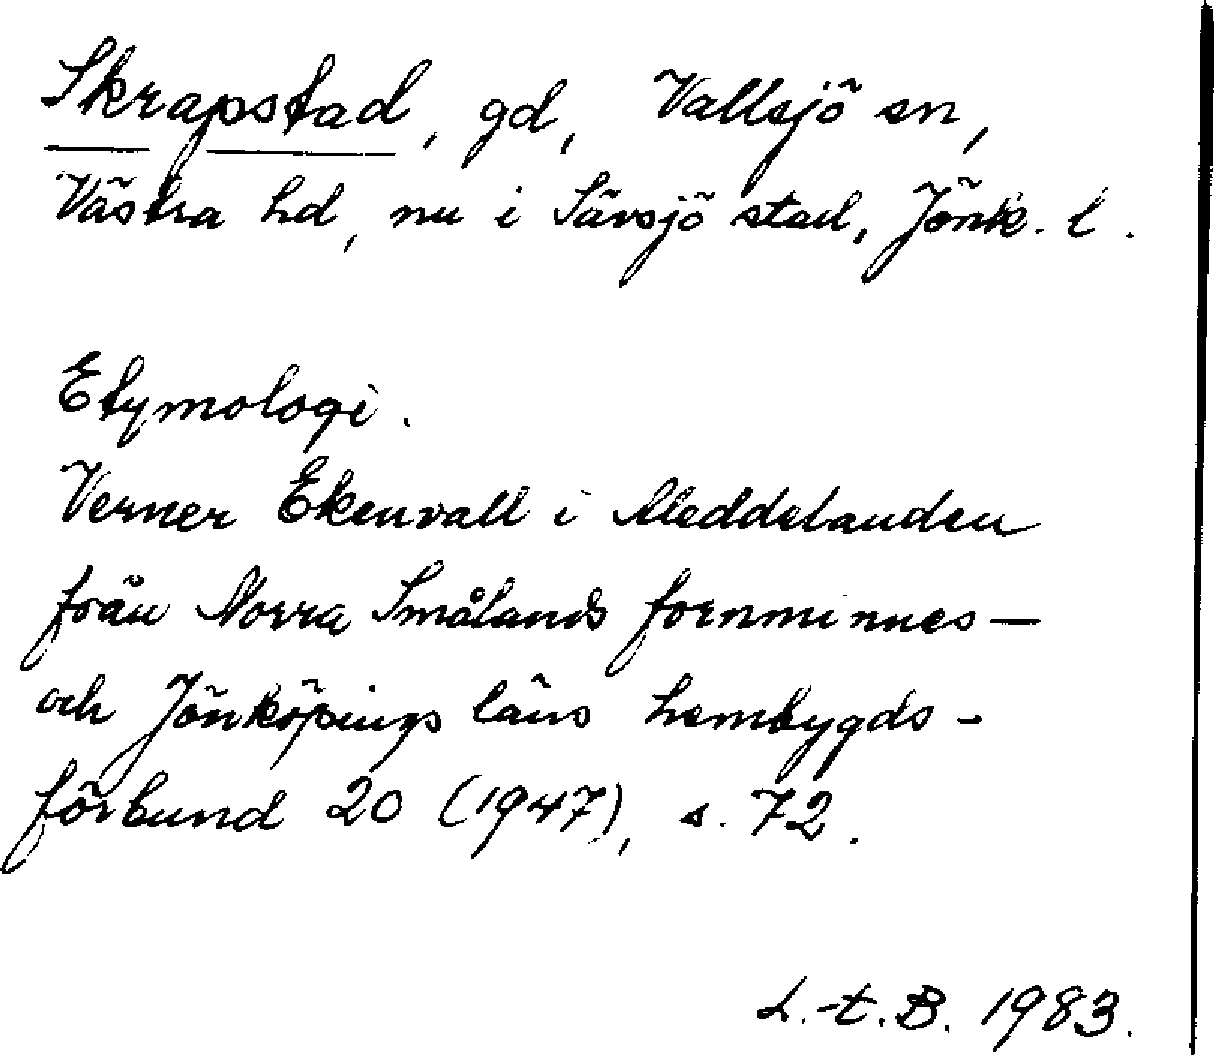 Skrapstad, gd, Vallsjö sn,
Västra hd, nu i Sävsjö stad, Jönk. l.
Etymologi.
Verner Ekenvall i Meddelanden
från Norra Smålands fornminnes-
och Jönköpings läns hembygds-
förbund 20 (1947), s. 72.
L.-t. B. 1983.